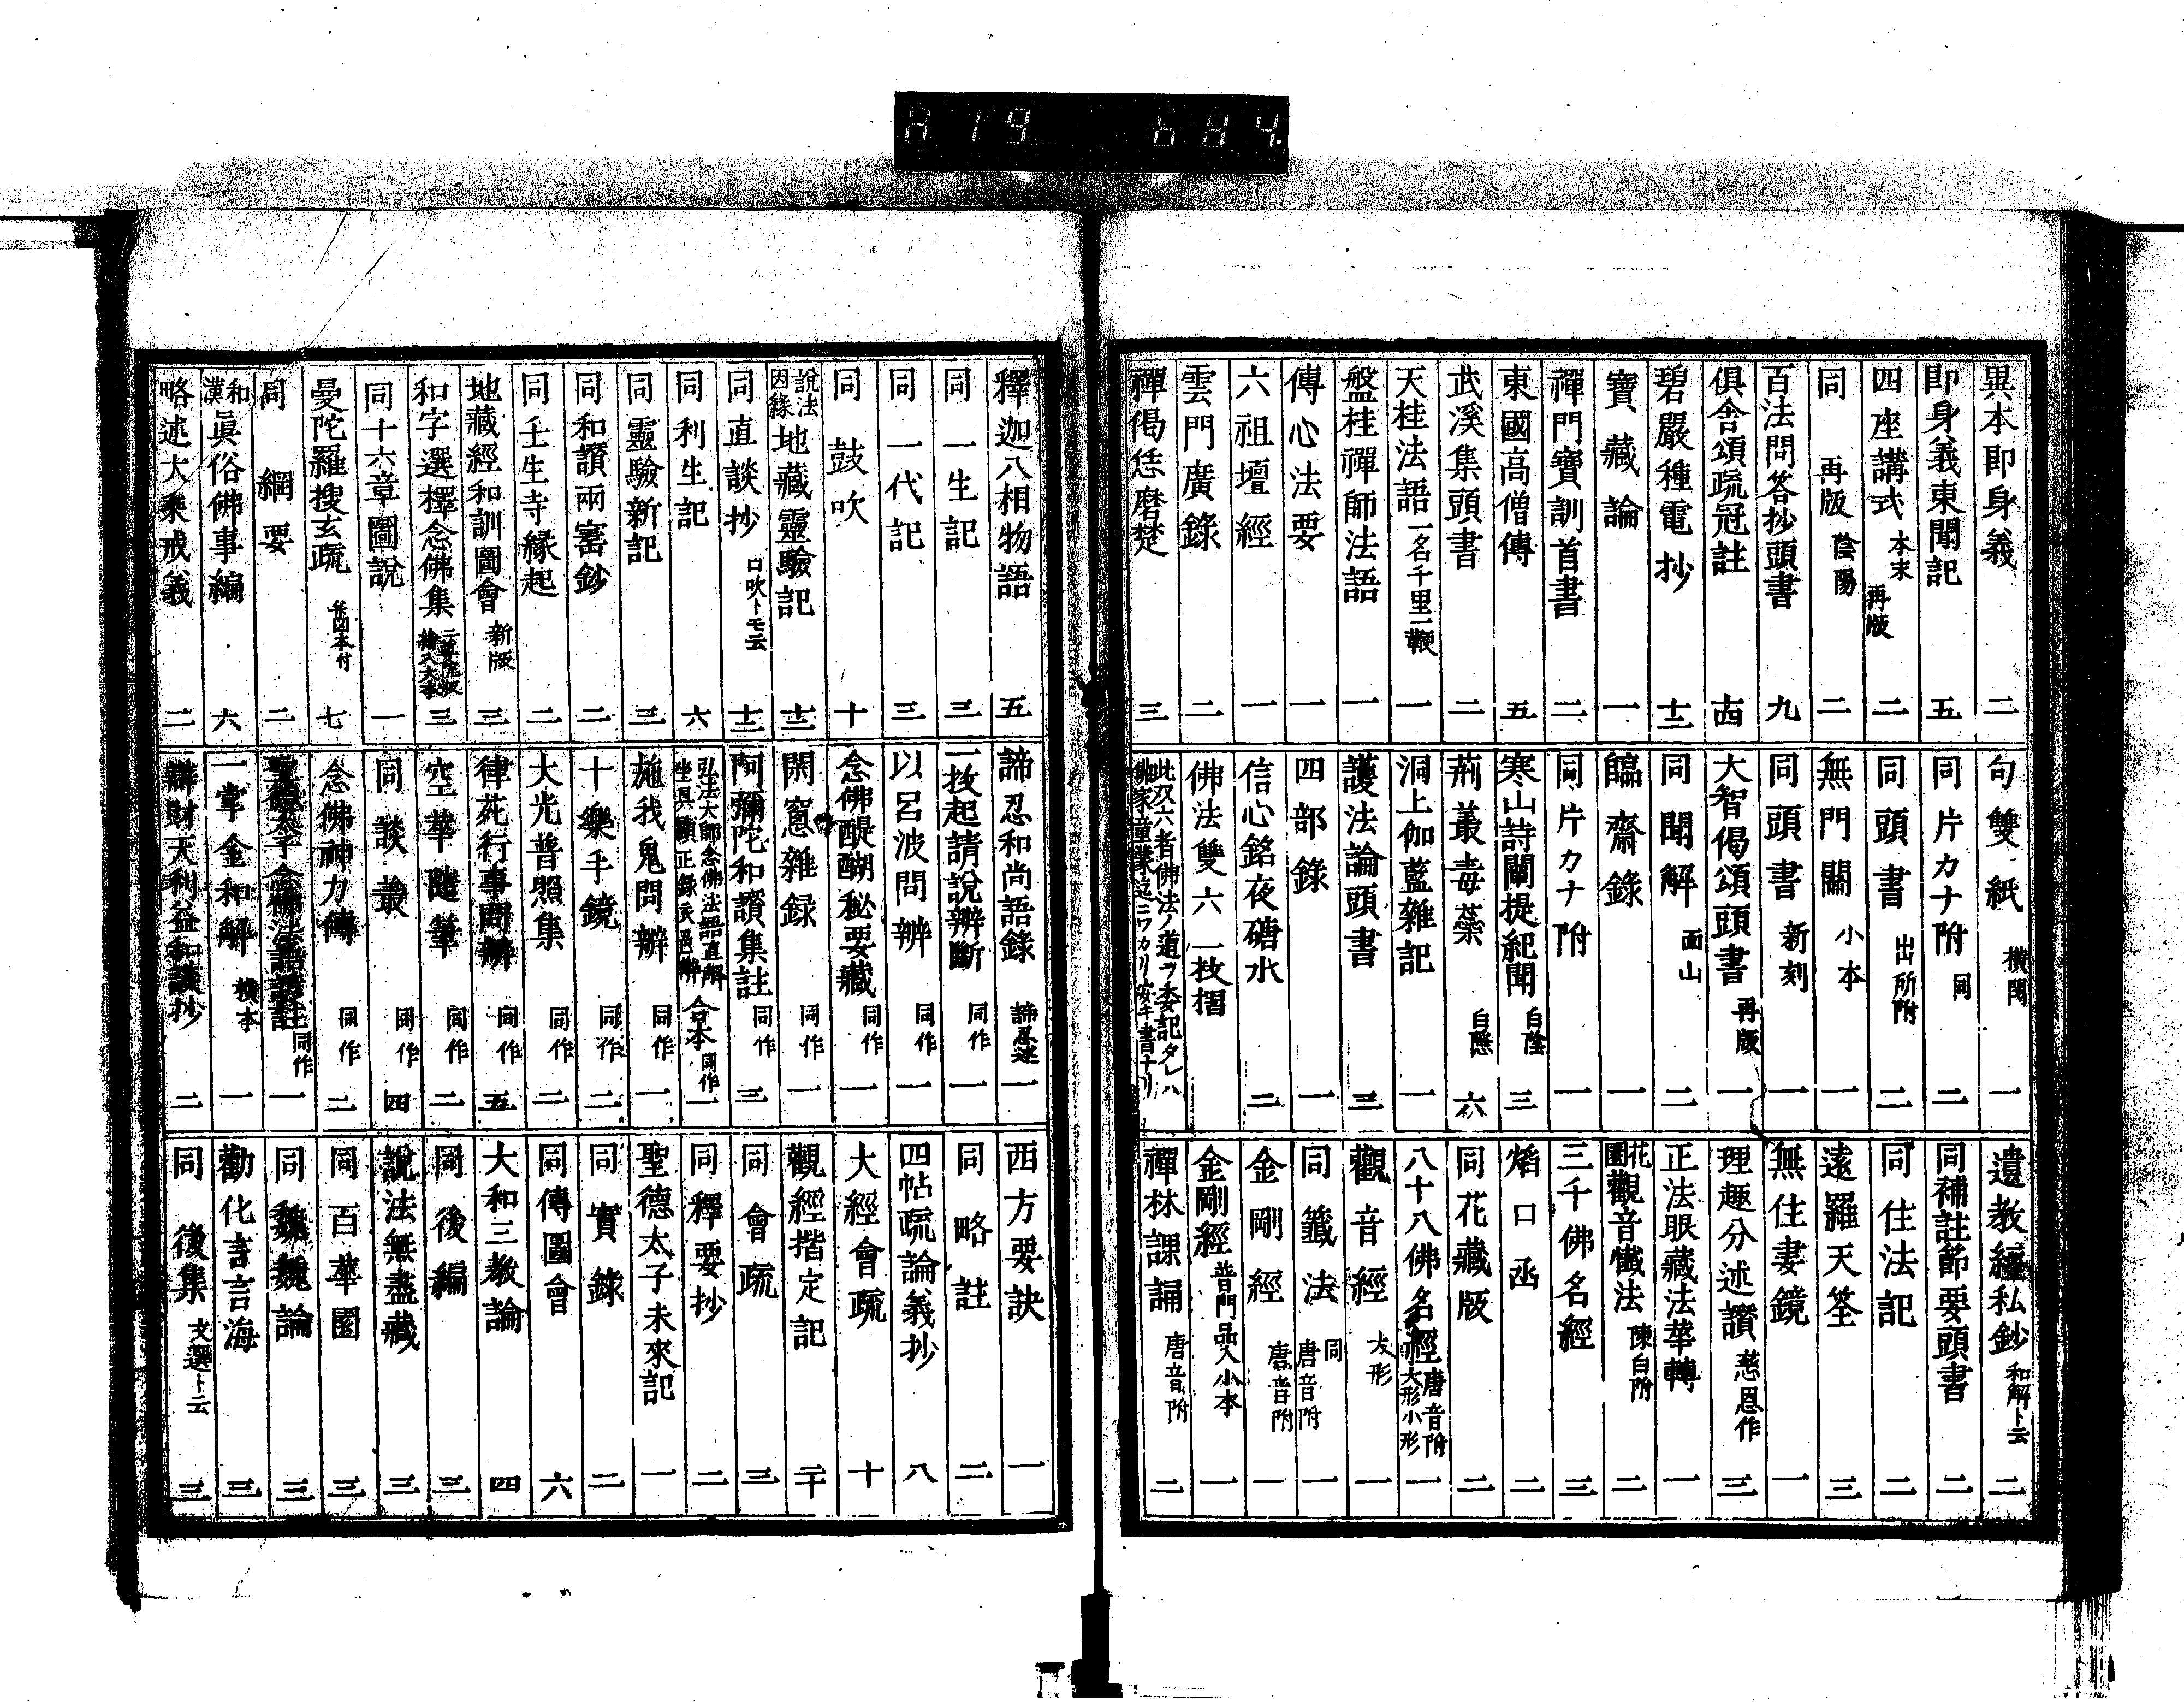 819 684
異本即身義 二
即身義東聞記 五
四座講式 本末 再版 二
同 再版 陰陽 二
百法問答抄頭書 九
俱舎頌疏冠註 十四
碧嚴種電抄 十二
寶藏論 一
禪門寶訓首書 二
東國高僧傳 五
武溪集頭書 二
天桂法語 一名千里一鞭 一
盤桂禪師法語 一
傳心法要 一
六祖壇經 一
雲門廣錄 二
禪偈恁磨楚 三
句雙紙 横閲 一
同片カナ附 同 二
同頭書 出所附 二
無門關 小本 一
同頭書 新刻 一
大智偈頌頭書 再版 一
同聞解 面山 二
臨齋錄 一
同片カナ附 一
寒山詩闡提紀聞 白隱 三
荊叢毒蘂 白隱 六
洞上伽藍雜記 一
護法論頭書 三
四部錄 一
信心銘夜磄水 二
佛法雙六 一枚摺
此双六者佛法ノ道ヲ委記タレハ
佛家童蒙迄ニワカリ安キ書ナリ
遺教經私鈔 和解ト云 二
同補註節要頭書 二
同住法記 二
遠羅天筌 三
無住妻鏡 一
理趣分述讃 慈恩作 三
正法眼藏法華轉 一
花園觀音懺法 陳白附 二
三千佛名經 三
焰口函 二
同花藏版 二
八十八佛名經 唐音附 大形小形 一
觀音經 大形 一
同籤法 同 唐音附 一
金剛經 唐音附 一
金剛經 普門品入小本 一
禪林課誦 唐音附 二
釋迦八相物語 五
同一生記 三
同一代記 三
同鼓吹 十
說法因緣 地藏靈驗記 十二
同直談抄 口吹トモ云 十二
同利生記 六
同靈驗新記 三
同和讃兩窓鈔 二
同壬生寺縁起 二
地藏經和訓圖會 新版 三
和字選擇念佛集 三
同十六章圖說 一
曼陀羅搜玄疏 七
同綱要 二
和漢 眞俗佛事編 六
略述大乘戒義 二
諦忍和尚語錄 諦忍述 一
二枚起請說辨斷 同作 一
以呂波問辨 同作 一
念佛醍醐秘要藏 同作 一
閑窓雜録 同作 一
阿彌陀和讃集註 同作 三
弘法大師念佛法語直解
坐具顯正録 合本 同作 一
施我鬼問辨 同作 一
十樂手鏡 同作 二
大光普照集 同作 二
律苑行事問辨 同作 五
空華隨筆 同作 二
同談叢 同作 四
念佛神力傳 同作 二
聖德太子念佛法語 同作 一
一掌金和解 横本 一
辯財天利益和談抄 二
西方要訣 一
同略註 二
四帖疏論義抄 八
大經會疏 十
觀經揩定記 二十
同會疏 三
同釋要抄 二
聖德太子未來記 一
同實錄 二
同傳圖會 六
大和三教論 四
同後編 三
說法無盡藏 三
同百華園 三
同巍巍論 三
勸化言言海 三
同後集 文選ト云 三